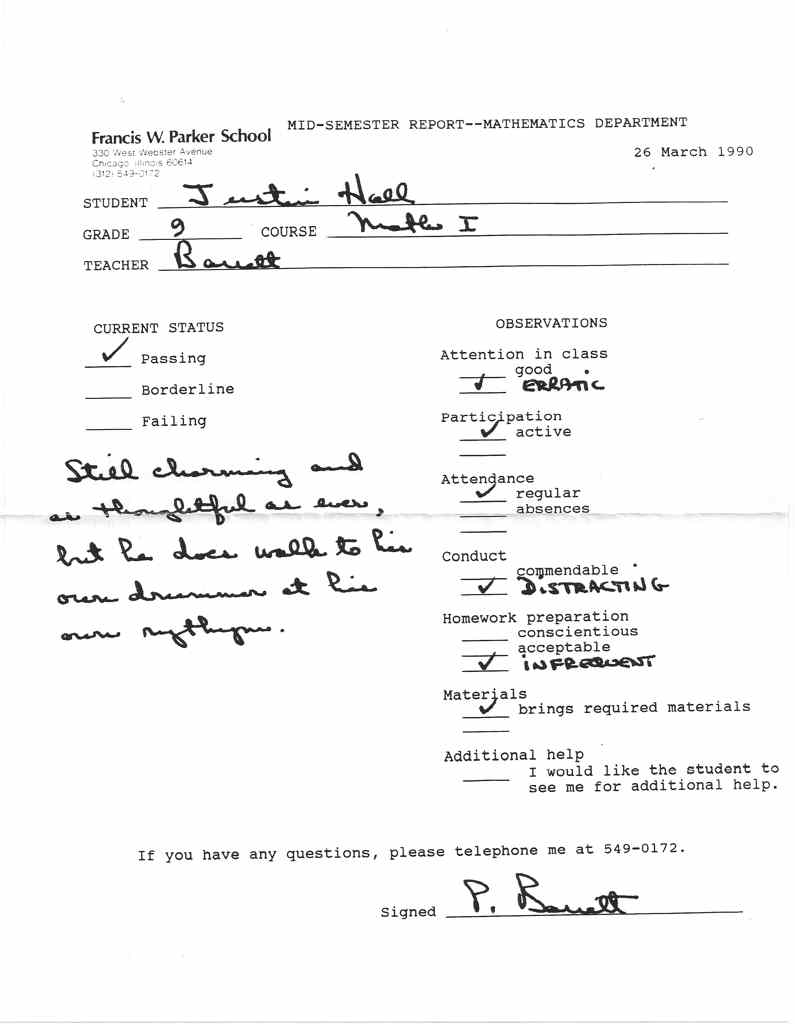 MID-SEMESTER REPORT--MATHEMATICS DEPARTMENT
Francis W. Parker School
330 West Webster Avenue
Chicago Illinois 60614
(312) 549-0172
26 March 1990
STUDENT Justin Hall
GRADE 9 COURSE Math I
TEACHER Barrett
CURRENT STATUS
✓ Passing
Borderline
Failing
Still charming and
as thoughtful as ever,
but he does walk to his
own drummer at his
own rythym.
OBSERVATIONS
Attention in class
good
✓ ERRATIC
Participation
✓ active
Attendance
✓ regular
absences
Conduct
commendable
✓ DISTRACTING
Homework preparation
conscientious
acceptable
✓ INFREQUENT
Materials
✓ brings required materials
Additional help
I would like the student to
see me for additional help.
If you have any questions, please telephone me at 549-0172.
Signed P. Barrett